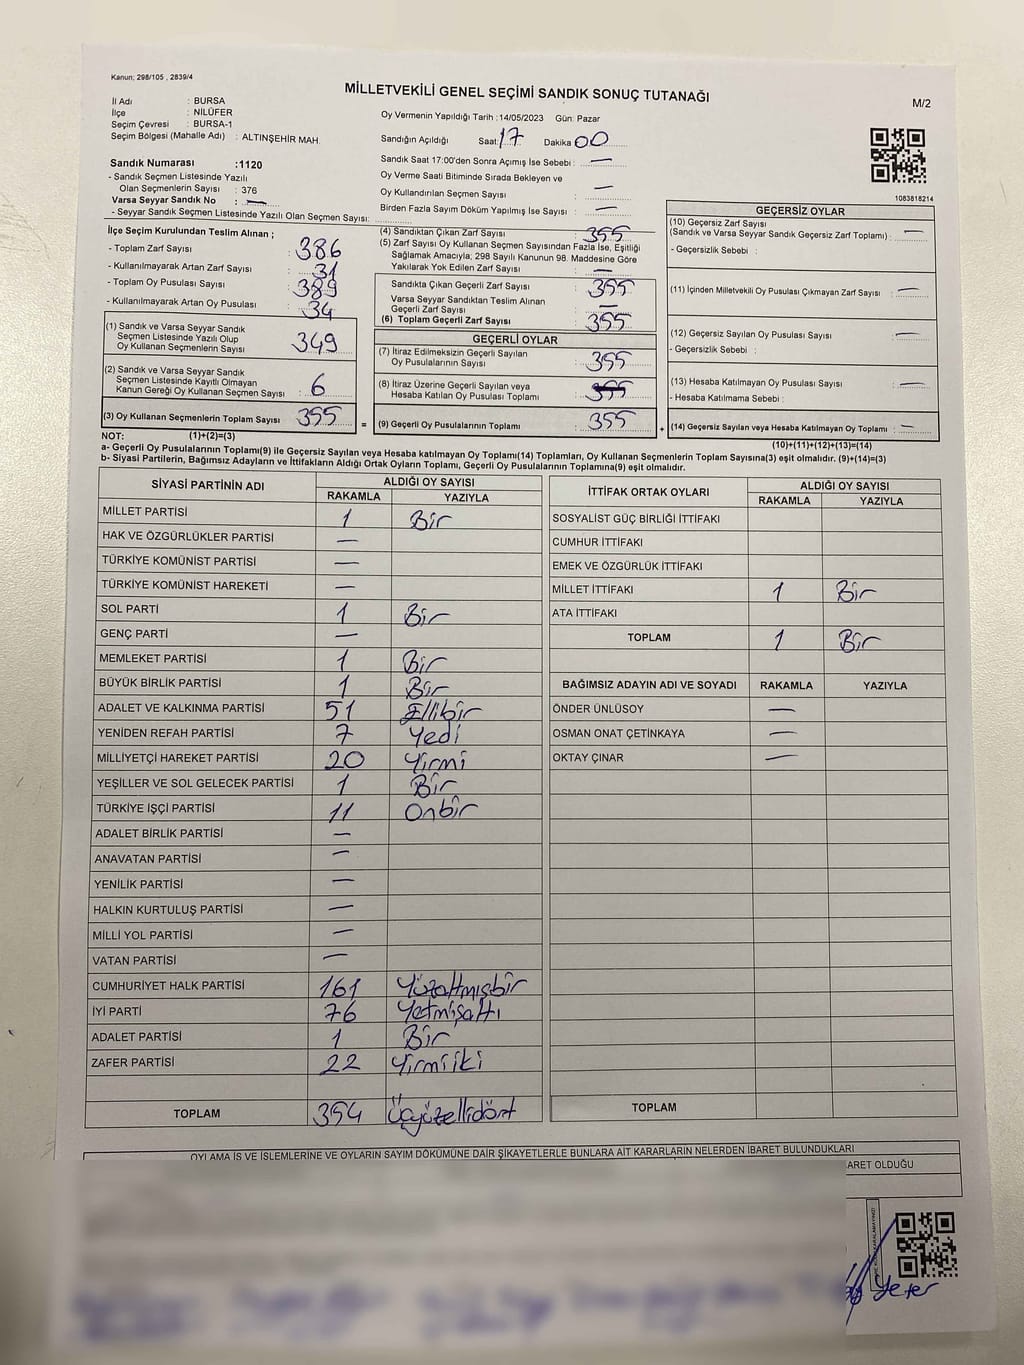 Kanun; 298/105 , 2839/4
MİLLETVEKİLİ GENEL SEÇİMİ SANDIK SONUÇ TUTANAĞI
M/2
İl Adı : BURSA
İlçe : NİLÜFER
Seçim Çevresi : BURSA-1
Seçim Bölgesi (Mahalle Adı) : ALTINŞEHİR MAH.
Oy Vermenin Yapıldığı Tarih : 14/05/2023 Gün: Pazar
Sandığın Açıldığı Saat: 17 Dakika 00
Sandık Saat 17:00'den Sonra Açımış İse Sebebi : —
Oy Verme Saati Bitiminde Sırada Bekleyen ve
Oy Kullandırılan Seçmen Sayısı —
Birden Fazla Sayım Döküm Yapılmış İse Sayısı : —
Sandık Numarası :1120
- Sandık Seçmen Listesinde Yazılı
Olan Seçmenlerin Sayısı : 376
Varsa Seyyar Sandık No : —
- Seyyar Sandık Seçmen Listesinde Yazılı Olan Seçmen Sayısı:
1083818214
İlçe Seçim Kurulundan Teslim Alınan ;
- Toplam Zarf Sayısı : 386
- Kullanılmayarak Artan Zarf Sayısı : 31
- Toplam Oy Pusulası Sayısı : 389
- Kullanılmayarak Artan Oy Pusulası : 34
(1) Sandık ve Varsa Seyyar Sandık
Seçmen Listesinde Yazılı Olup
Oy Kullanan Seçmenlerin Sayısı 349
(2) Sandık ve Varsa Seyyar Sandık
Seçmen Listesinde Kayıtlı Olmayan
Kanun Gereği Oy Kullanan Seçmen Sayısı : 6
(3) Oy Kullanan Seçmenlerin Toplam Sayısı 355
(4) Sandıktan Çıkan Zarf Sayısı : 355
(5) Zarf Sayısı Oy Kullanan Seçmen Sayısından Fazla İse, Eşitliği
Sağlamak Amacıyla; 298 Sayılı Kanunun 98. Maddesine Göre
Yakılarak Yok Edilen Zarf Sayısı : —
Sandıkta Çıkan Geçerli Zarf Sayısı : 355
Varsa Seyyar Sandıktan Teslim Alınan
Geçerli Zarf Sayısı : —
(6) Toplam Geçerli Zarf Sayısı : 355
GEÇERLİ OYLAR
(7) İtiraz Edilmeksizin Geçerli Sayılan
Oy Pusulalarının Sayısı : 355
(8) İtiraz Üzerine Geçerli Sayılan veya
Hesaba Katılan Oy Pusulası Toplamı : 355
= (9) Geçerli Oy Pusulalarının Toplamı : 355
GEÇERSİZ OYLAR
(10) Geçersiz Zarf Sayısı
(Sandık ve Varsa Seyyar Sandık Geçersiz Zarf Toplamı) : —
- Geçersizlik Sebebi :
(11) İçinden Milletvekili Oy Pusulası Çıkmayan Zarf Sayısı : —
(12) Geçersiz Sayılan Oy Pusulası Sayısı : —
- Geçersizlik Sebebi :
(13) Hesaba Katılmayan Oy Pusulası Sayısı : —
- Hesaba Katılmama Sebebi :
+ (14) Geçersiz Sayılan veya Hesaba Katılmayan Oy Toplamı : —
NOT: (1)+(2)=(3)
(10)+(11)+(12)+(13)=(14)
a- Geçerli Oy Pusulasının Toplamı(9) ile Geçersiz Sayılan veya Hesaba katılmayan Oy Toplamı(14) Toplamları, Oy Kullanan Seçmenlerin Toplam Sayısına(3) eşit olmalıdır. (9)+(14)=(3)
b- Siyasi Partilerin, Bağımsız Adayların ve İttifakların Aldığı Ortak Oyların Toplamı, Geçerli Oy Pusulalarının Toplamına(9) eşit olmalıdır.
SİYASİ PARTİNİN ADI ALDIĞI OY SAYISI
RAKAMLA YAZIYLA
MİLLET PARTİSİ 1 Bir
HAK VE ÖZGÜRLÜKLER PARTİSİ —
TÜRKİYE KOMÜNİST PARTİSİ —
TÜRKİYE KOMÜNİST HAREKETİ —
SOL PARTİ 1 Bir
GENÇ PARTİ —
MEMLEKET PARTİSİ 1 Bir
BÜYÜK BİRLİK PARTİSİ 1 Bir
ADALET VE KALKINMA PARTİSİ 51 Ellibir
YENİDEN REFAH PARTİSİ 7 Yedi
MİLLİYETÇİ HAREKET PARTİSİ 20 Yirmi
YEŞİLLER VE SOL GELECEK PARTİSİ 1 Bir
TÜRKİYE İŞÇİ PARTİSİ 11 Onbir
ADALET BİRLİK PARTİSİ —
ANAVATAN PARTİSİ —
YENİLİK PARTİSİ —
HALKIN KURTULUŞ PARTİSİ —
MİLLİ YOL PARTİSİ —
VATAN PARTİSİ —
CUMHURİYET HALK PARTİSİ 161 Yüzaltmışbir
İYİ PARTİ 76 Yetmişaltı
ADALET PARTİSİ 1 Bir
ZAFER PARTİSİ 22 Yirmiiki
TOPLAM 354 Üçyüzellidört
İTTİFAK ORTAK OYLARI ALDIĞI OY SAYISI
RAKAMLA YAZIYLA
SOSYALİST GÜÇ BİRLİĞİ İTTİFAKI
CUMHUR İTTİFAKI
EMEK VE ÖZGÜRLÜK İTTİFAKI
MİLLET İTTİFAKI 1 Bir
ATA İTTİFAKI
TOPLAM 1 Bir
BAĞIMSIZ ADAYIN ADI VE SOYADI RAKAMLA YAZIYLA
ÖNDER ÜNLÜSOY —
OSMAN ONAT ÇETİNKAYA —
OKTAY ÇINAR —
TOPLAM
OYLAMA İŞ VE İŞLEMLERİNE VE OYLARIN SAYIM DÖKÜMÜNE DAİR ŞİKAYETLERLE BUNLARA AİT KARARLARIN NELERDEN İBARET BULUNDUKLARI
ARET OLDUĞU
Yeter